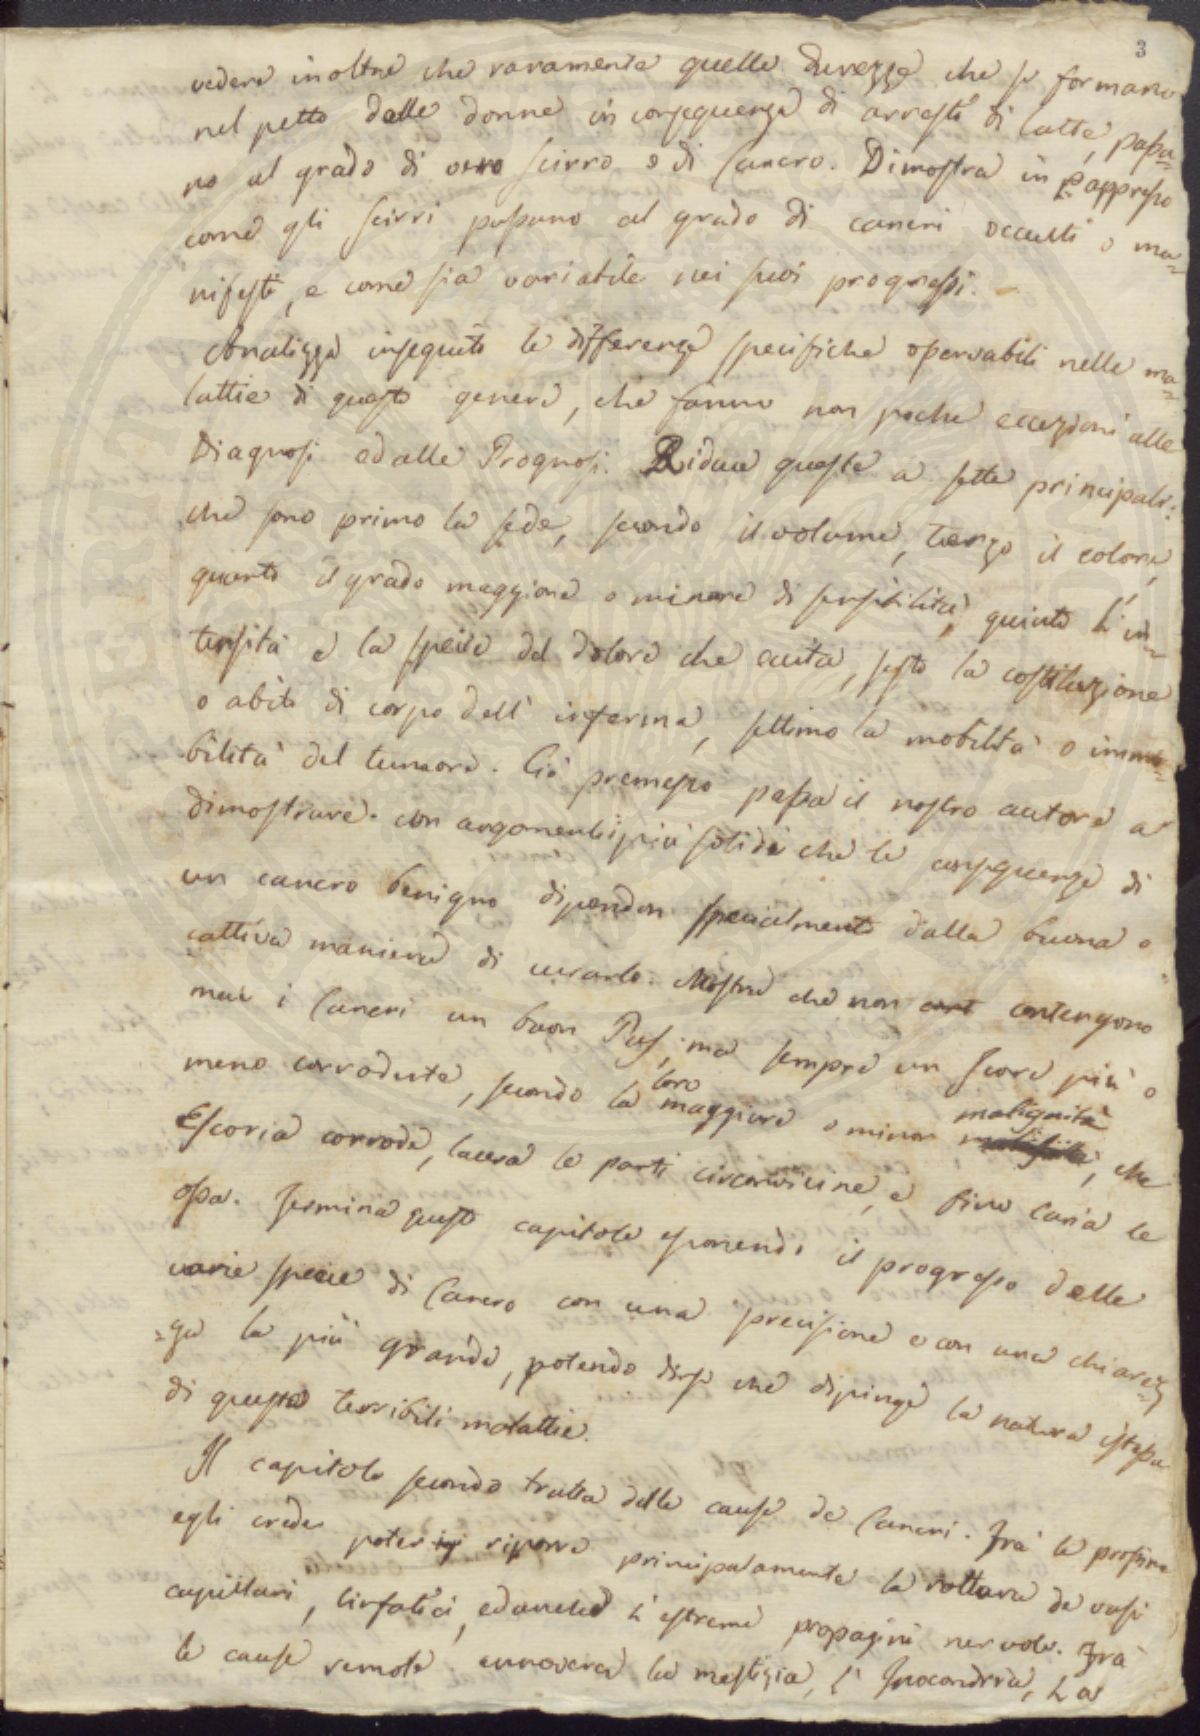 3
vedere inoltre che raramente quelle durezze che si formano
nel petto delle donne in conseguenza di arresti di latte, passa=
no al grado di vero scirro o di Cancro. Dimostra in appresso
come gli scirri passano al grado di cancri occulti o ma=
nifesti, e come sia variabile nei suoi progressi.
Analizza inseguito le differenze specifiche osservabili nelle ma=
lattie di questo genere, che fanno non poche eccezioni alle
Diagnosi ed alle Prognosi. Riduce queste a sette principali:
che sono primo la sede, secondo il volume, terzo il colore,
quarto il grado maggiore o minore di sensibilità, quinto l'in=
tensità e la specie del dolore che eccita, sesto la costituzione
o abito di corpo dell'inferma, settimo la mobilità o immo=
bilità del tumore. Ciò premesso passa il nostro autore a
dimostrare con argomenti i più solidi che le conseguenze di
un cancro benigno dipendon specialmente dalla buona o
cattiva maniera di curarlo. Mostra che non cont contengono
mai i Cancri un buon Pus, ma sempre un Icore più o
meno corrodente, secondo la loro maggiore o minor malignità, che
Escoria corrode, lacera le parti circonvicine, e fino caria le
ossa. Termina questo capitolo esponendo il progresso delle
varie specie di Cancro con una precisione e con una chiarez=
=za la più grande, potendo dirsi che dipinge la natura istessa
di queste terribili malattie.
Il capitolo secondo tratta delle cause de Cancri. Frà le prossime
egli crede poter riporre principalmente la rottura de vasi
capillari, linfatici, ed anche l'estreme propagini nervose. Frà
le cause remote annovera la mestizia, l'Ipocondria, La